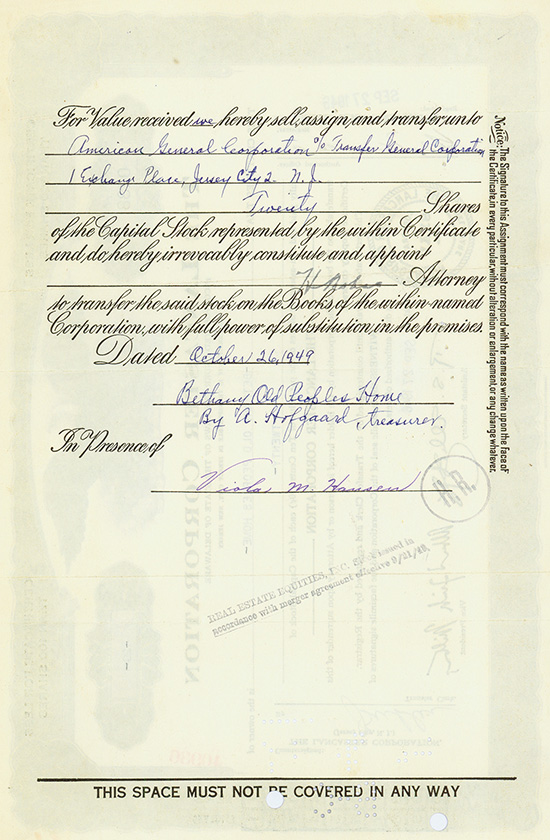 For Value, received we, hereby sell, assign, and, transfer, unto
American General Corporation % Transfer General Corporation
1 Exchange Place, Jersey City 2. N.J.
Twenty Shares
of, the, Capital, Stock, represented, by, the, within Certificate
and, do, hereby irrevocably, constitute, and, appoint
Attorney
to, transfer, the, said, stock, on, the, Books, of, the, within-named
Corporation, with, full, power, of, substitution, in, the, premises
Dated October 26, 1949
Bethany Old Peoples Home
By A. Hofgaard, treasurer.
In Presence, of
Viola M. Hansen
H.R.
REAL ESTATE EQUITIES, INC. issued in
accordance with merger agreement effective 9/21/49.
THIS SPACE MUST NOT BE COVERED IN ANY WAY
Notice: The Signature to this Assignment must correspond with the name as written upon the face of
the Certificate, in every particular, without alteration or enlargement, or any change whatever.
CORPORATION
THE LANCASTER CORPORATION.